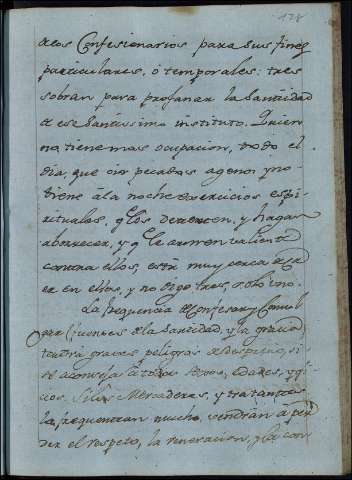 128
delos Confesionarios para sus fines
particulares, ó temporales: tres
sobran para profanar la Santidad
de ese Santissimo instituto. Quien
no tiene mas ocupacion, todo el
dia, que oir pecados agenos, y no
tiene à la noche exercicios espi-
rituales, q los
aborrecer, y q le
contra ellos, està muy cerca de ca
er en ellos, y no digo tres, solo uno.
La frequencia de Confesar, y Comul
gar (fuentes de la Santidad, y la gracia
tendrá graves peligros de desprecio, si
se aconseja à todos sexos, edades, y ofi
cios. Si los Mercaderes, y tratantes
la frequentan mucho, vendran à per
der el respeto, la veneracion, y la con